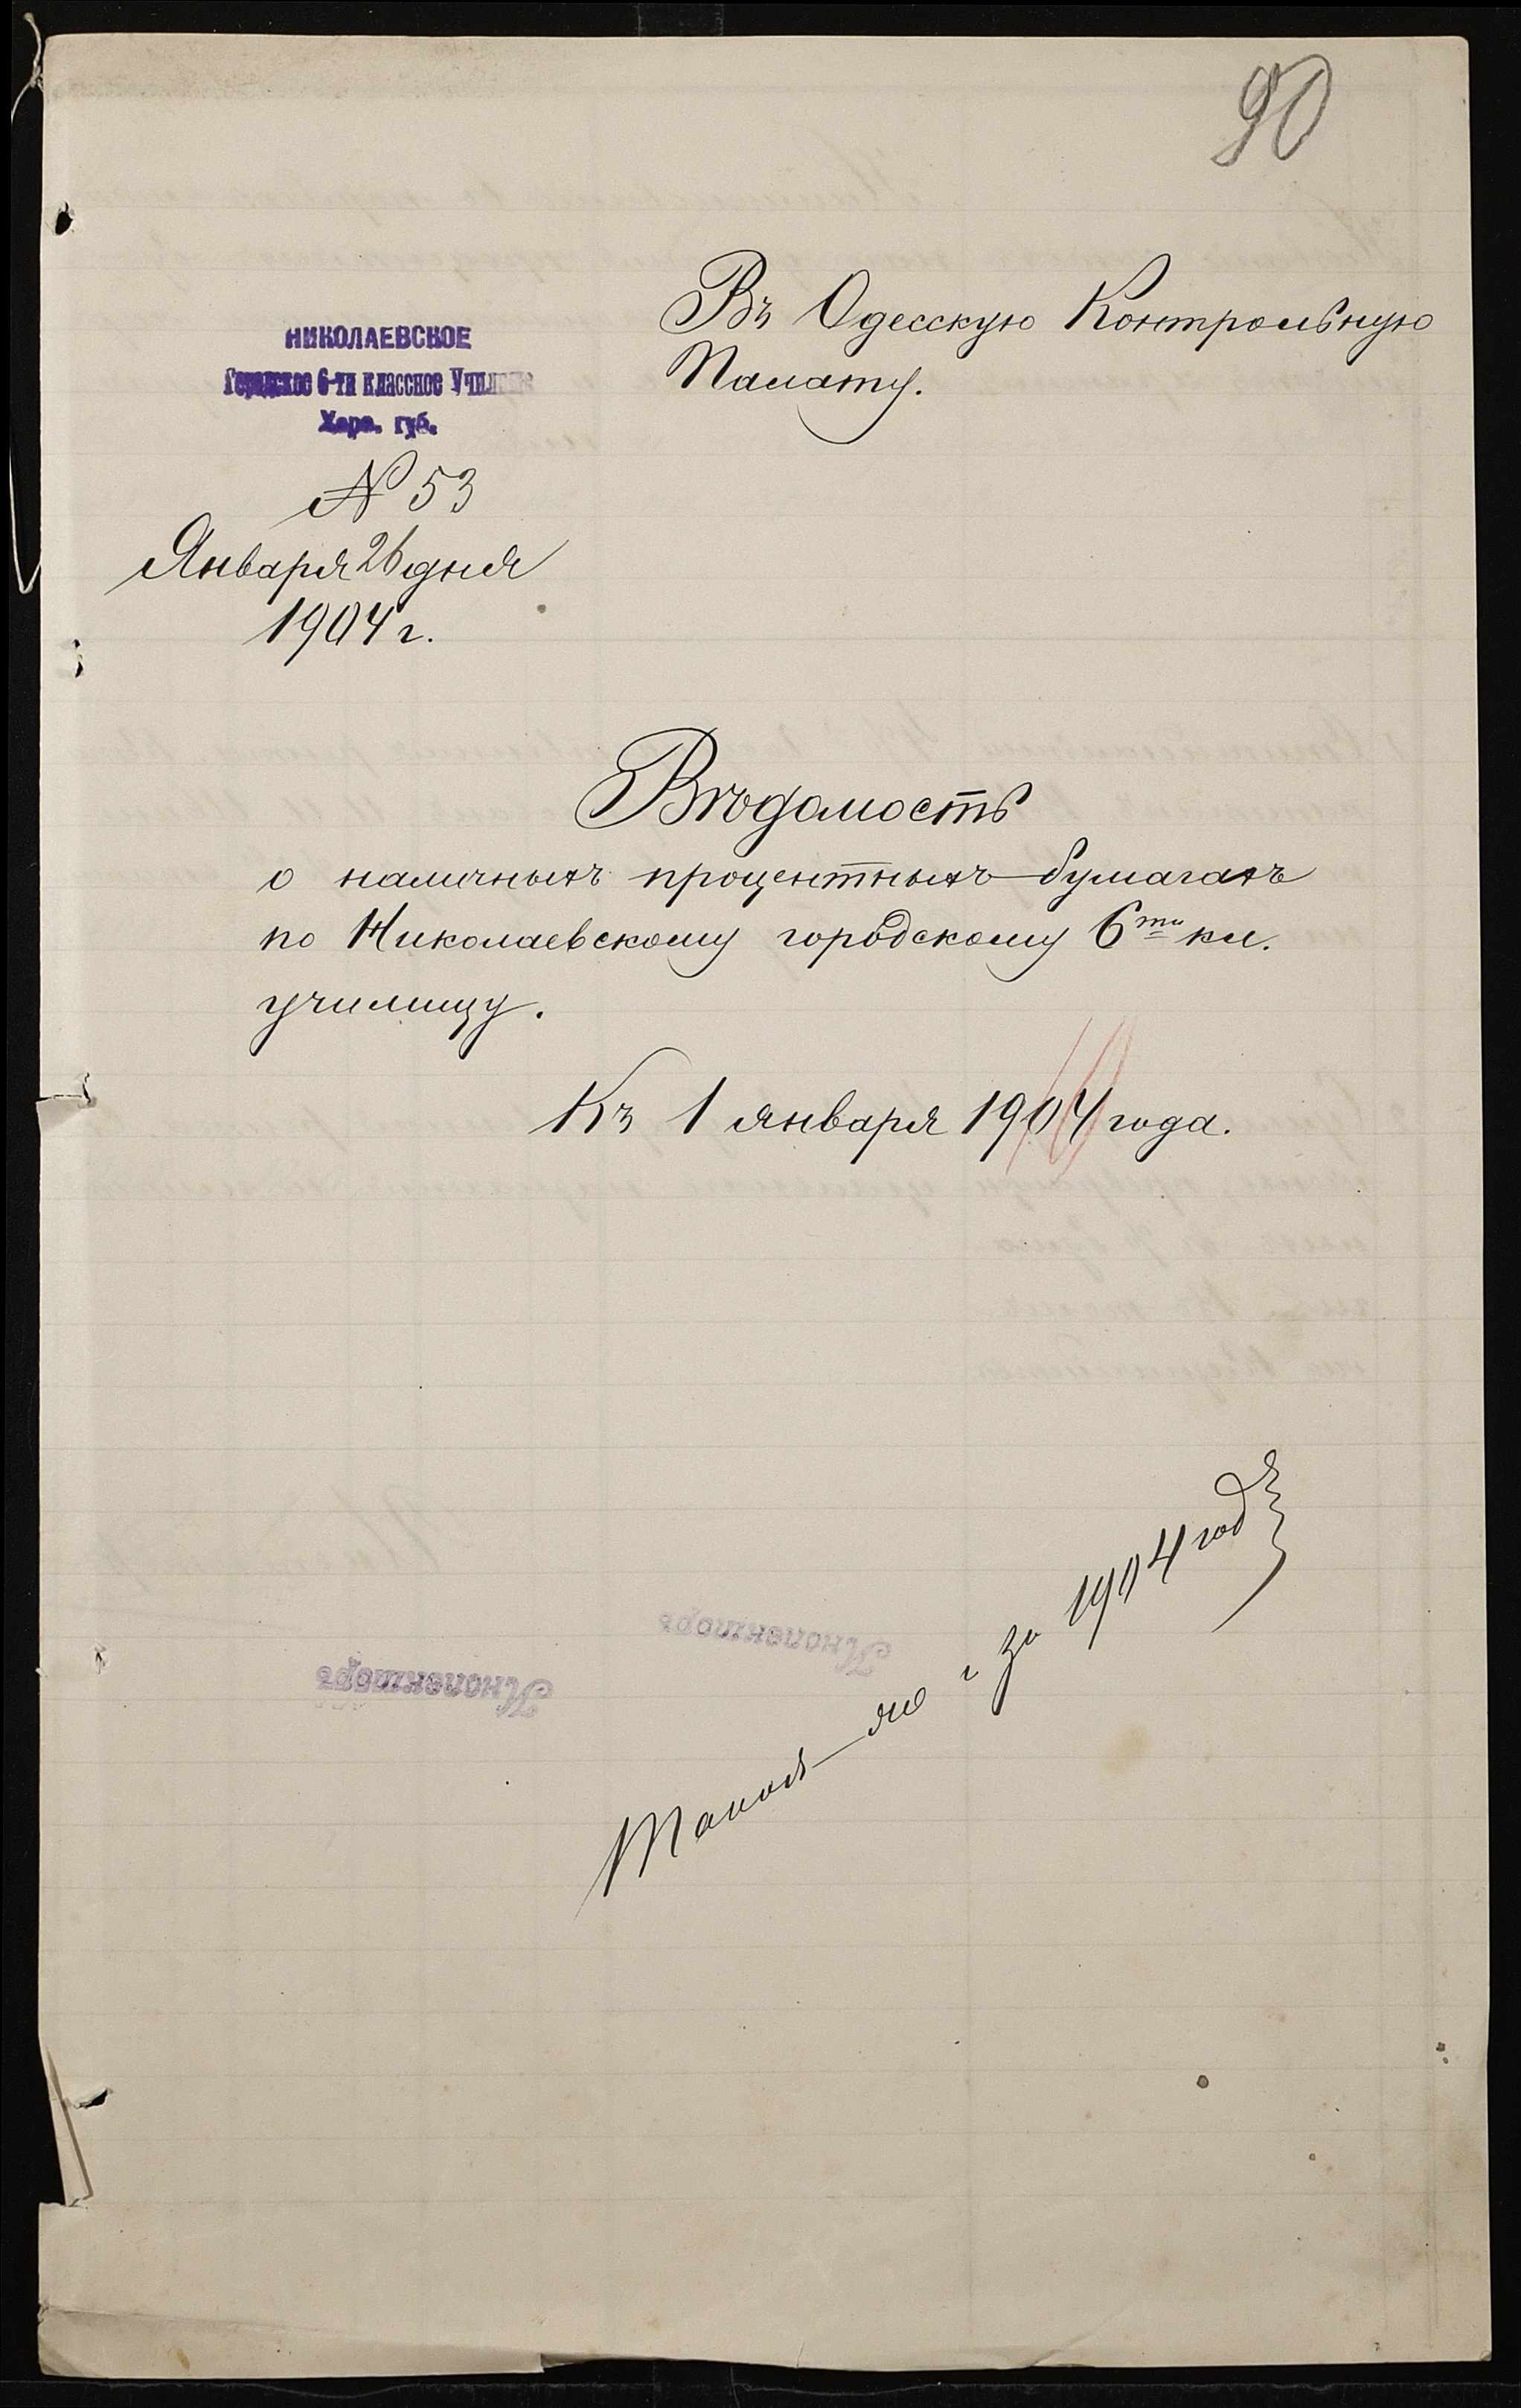 90
Въ Одесскую Контрольную
Палату.
НИКОЛАЕВСКОЕ
Городское 6-ти классное Училище
Херс. губ.
№ 53
Января 26 дня
1904 г.
Вѣдомость
о наличныхъ процентныхъ бумагахъ
по Николаевскому городскому 6ти кл.
училищу.
Къ 1 января 1904 года.
Такая-же и за 1904 год
Инспекторъ
Инспекторъ